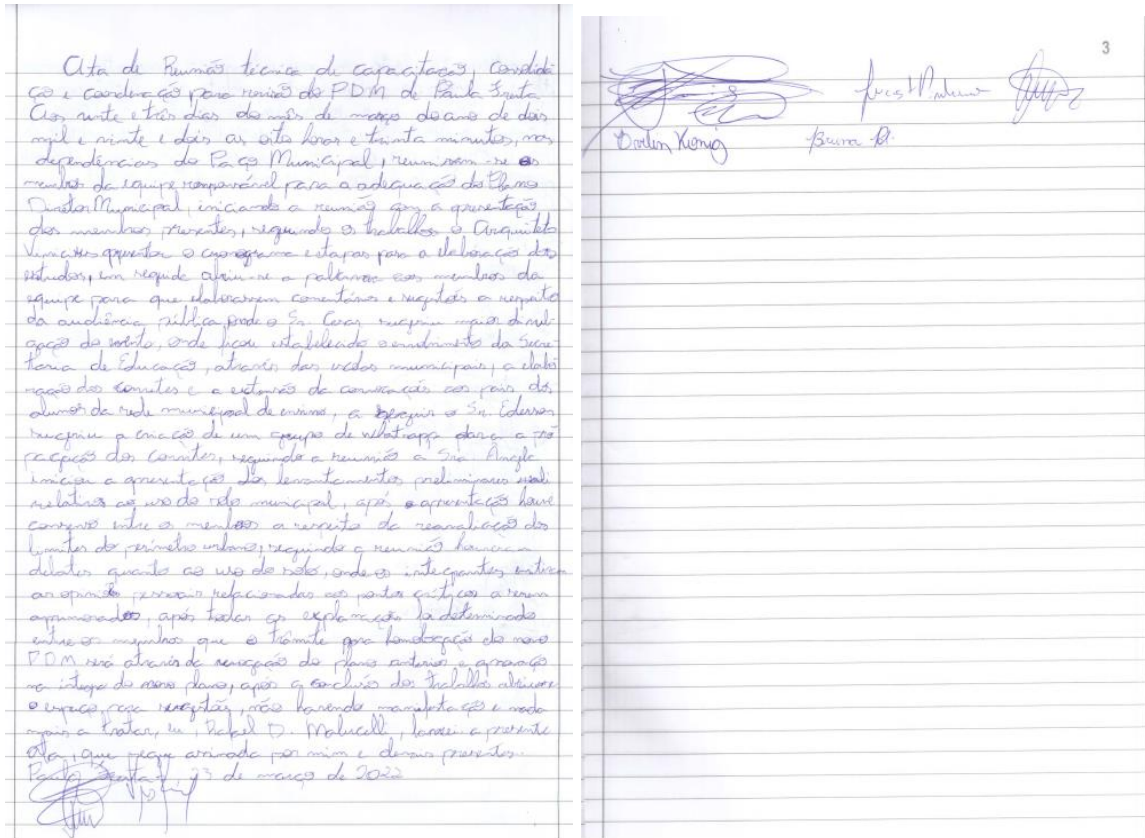 Ata de Reunião técnica de capacitação, consolida
ção e coordenação para revisão do PDM de Paula Freitas
Aos vinte e três dias do mês de março do ano de dois
mil e vinte e dois as oito horas e trinta minutos, nas
dependências do Paço Municipal, reuniram-se os
membros da equipe responsável para a adequação do Plano
Diretor Municipal, iniciando a reunião com a apresentação
dos membros presentes, seguindo os trabalhos o Arquiteto
Vinicius apresentou o cronograma e etapas para a elaboração dos
estudos, em seguida abriu-se a palavra aos membros da
equipe para que elaborassem comentários e sugestões a respeito
da audiência pública, onde o Sr. Cesar sugeriu maior divul-
gação do evento, onde ficou estabelecido o envolvimento da Secre
taria de Educação, através das escolas municipais, a elabo
ração dos convites e a extensão da convocação aos pais dos
alunos da rede municipal de ensino, a seguir o Sr. Ederson
sugeriu a criação de um grupo de whatsapp para a pro
pagação dos convites, seguindo a reunião a Sra Ângela
iniciou a apresentação dos levantamentos preliminares
relativos ao uso do solo municipal, após a apresentação houve
consenso entre os membros a respeito da reanálise dos
limites do perímetro urbano, seguindo a reunião houveram
debates quanto ao uso do solo, onde os integrantes
as opiniões pessoais relacionadas aos pontos críticos a serem
aprimorados, após todas as explanações foi determinado
entre os membros que o trâmite para homologação do novo
PDM será através da revogação do plano anterior e aprovação
na íntegra do novo plano, após a conclusão dos trabalhos abriu-se
o espaço para sugestões, não havendo manifestação e nada
mais a tratar, eu, Rafael D. Malucelli, lavrei a presente
ata, que segue assinada por mim e demais presentes.
Paula Freitas, 23 de março de 2022
3
Evelin Konig
Bruna